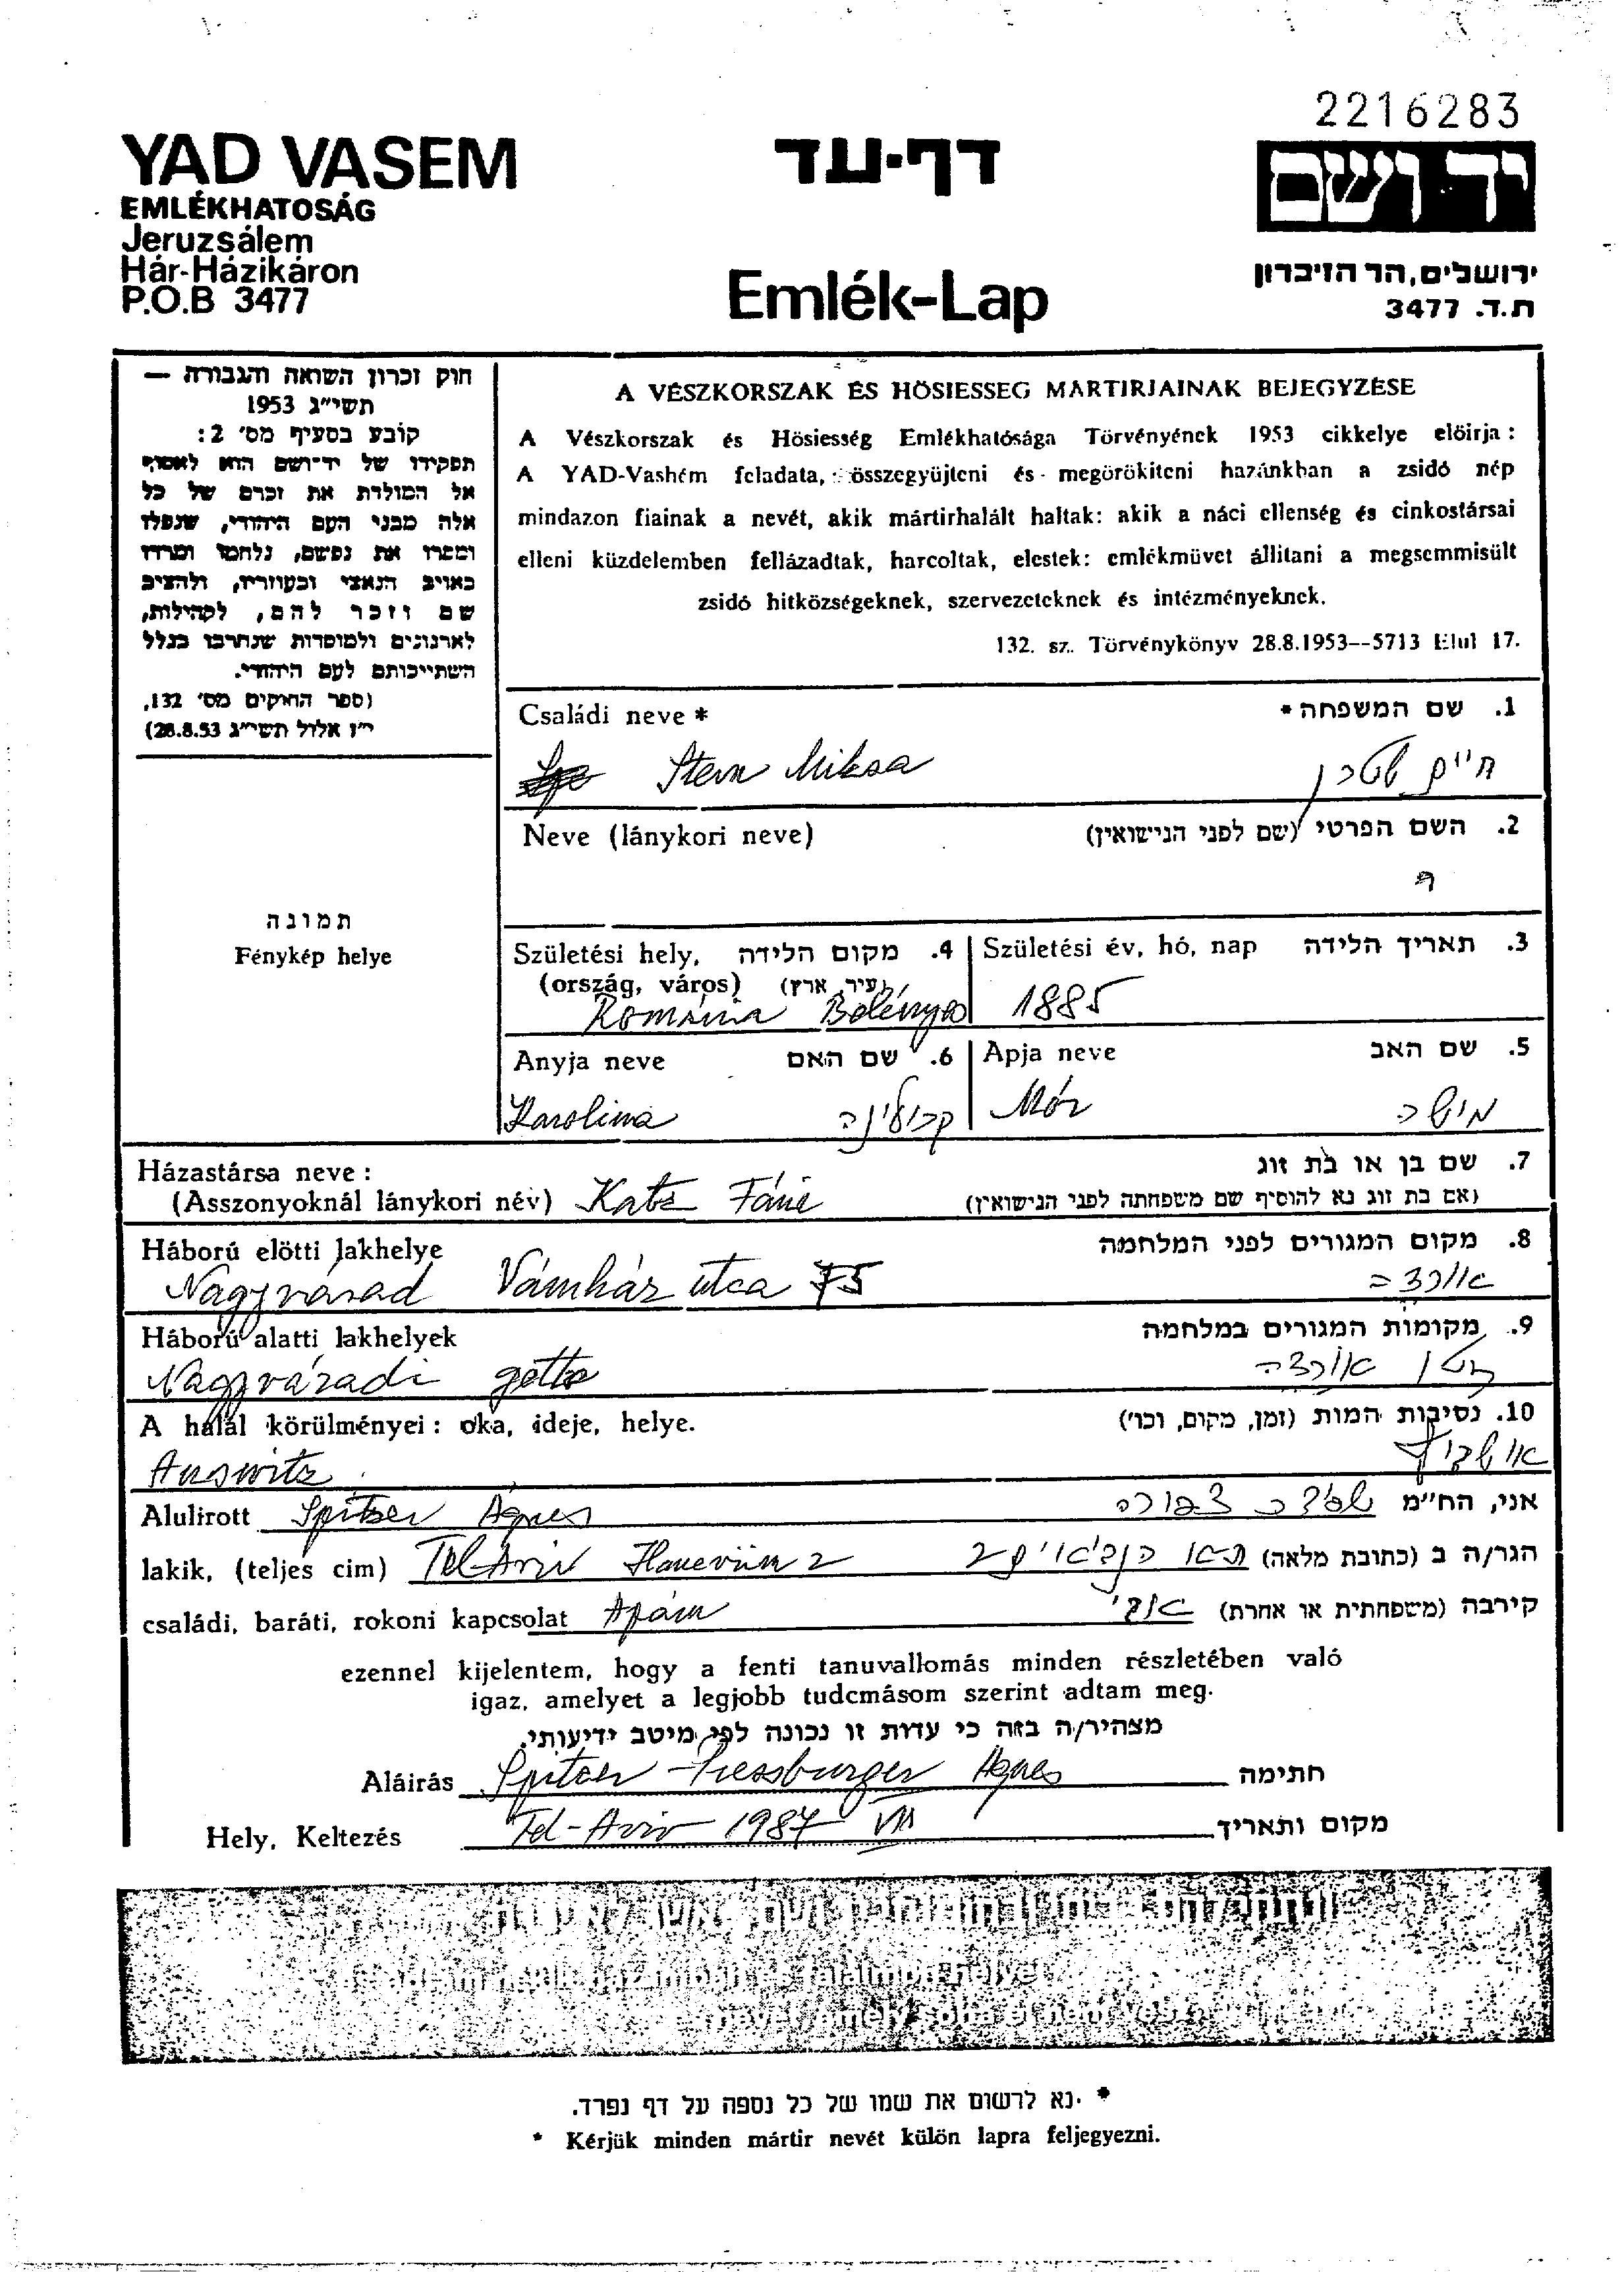 2216283
YAD VASEM
EMLÉKHATOSÁG
Jeruzsálem
Hár-Házikáron
P.O.B 3477
דף-עד
Emlék-Lap
יד ושם
ירושלים, הר הזיכרון
ת.ד. 3477
חוק זכרון השואה והגבורה —
תשי"ג 1953
קובע בסעיף מס' 2:
תפקידו של יד-ושם הוא לאסוף
אל המולדת את זכרם של כל
אלה מבני העם היהודי, שנפלו
ומסרו את נפשם, נלחמו ומרדו
באויב הנאצי ובעוזריו, ולהציב
שם וזכר להם, לקהילות,
לארגונים ולמוסדות שנחרבו בגלל
השתייכותם לעם היהודי.
(ספר החוקים מס' 132,
י"ז אלול תשי"ג 28.8.53)
תמונה
Fénykép helye
A VÉSZKORSZAK ÉS HÖSIESSEG MARTIRJAINAK BEJEGYZÉSE
A Vészkorszak és Hösiesség Emlékhatósága Törvényének 1953 cikkelye elöirja :
A YAD-Vashém feladata, összegyüjteni és megörökiteni hazánkban a zsidó nép
mindazon fiainak a nevét, akik mártirhalált haltak: akik a náci ellenség és cinkostársai
elleni küzdelemben fellázadtak, harcoltak, elestek: emlékmüvet állitani a megsemmisült
zsidó hitközségeknek, szervezeteknek és intézményeknek.
132. sz. Törvénykönyv 28.8.1953--5713 Elul 17.
Családi neve * 1. שם המשפחה *
Stern Miksa חיים שטרן
Neve (lánykori neve) 2. השם הפרטי (שם לפני הנישואין)
Születési hely, 4. מקום הלידה
(ország, város) (עיר, ארץ)
Románia Belényes
Születési év, hó, nap 3. תאריך הלידה
1885
Anyja neve 6. שם האם
Karolina קרולינה
Apja neve 5. שם האב
Mór מישה
Házastársa neve : 7. שם בן או בת זוג
(Asszonyoknál lánykori név) Katz Fáni (אם בת זוג נא להוסיף שם משפחתה לפני הנישואין)
Háború elötti lakhelye 8. מקום המגורים לפני המלחמה
Nagyvárad Vámház utca 75 אורדה
Háború alatti lakhelyek 9. מקומות המגורים במלחמה
Nagyváradi getto גטו אורדה
A halál körülményei : oka, ideje, helye. 10. נסיבות המות (זמן, מקום, וכו')
Auswitz אושביץ
Alulirott Spitzer Ágnes אני, הח"מ שפיצר צפורה
lakik, (teljes cim) Tel-Aviv Haneviim 2 הגר/ה ב (כתובת מלאה) תא הנביאים 2
családi, baráti, rokoni kapcsolat Apám קירבה (משפחתית או אחרת) אבי
ezennel kijelentem, hogy a fenti tanuvallomás minden részletében való
igaz, amelyet a legjobb tudcmásom szerint adtam meg.
מצהיר/ה בזה כי עדות זו נכונה לפי מיטב ידיעותי.
Aláirás Spitzer Pressburger Agnes חתימה
Hely, Keltezés Tel-Aviv 1987 VIII מקום ותאריך
* נא לרשום את שמו של כל נספה על דף נפרד.
* Kérjük minden mártir nevét külön lapra feljegyezni.